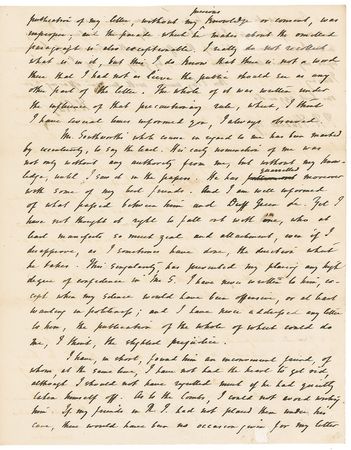 previous
publication of my letter, without my knowledge or consent, was
improper; and the parade which he makes about the omitted
paragraph is also exceptionable. I really do not recollect
what is in it, but this I do know that there is not a word
there that I had not as lieve the public should see as any
other part of the letter. The whole of it was written under
the influence of that precautionary rule, which, I think
I have several times informed you, I always observed.
Mr. whole course in regard to me has been marked
by eccentricity, to say the least. His early nomination of me was
not only without any authority from me, but without my know-
ledge, until I saw it in the papers. He has quarrelled moreover
with some of my best friends. And I am well informed
of what passed between him and Duff Green &c. Yet I
have not thought it right to fall out with one, who at
least manifests so much zeal and attachment, even if I
disapprove, as I sometimes have done, the direction which
he takes. This singularity has prevented my placing any high
degree of confidence in Mr. S. I have never written to him, ex-
cept when my silence would have been offensive, or at least
wanting in politeness; and I have never addressed any letter
to him, the publication of the whole of which could do
me, I think, the slightest prejudice.
I have, in short, found him an inconvenient friend, of
whom, at the same time, I have not had the heart to get rid,
although I should not have regretted much if he had quietly
taken himself off. As to the Combs, I could not avoid writing
him. If my friends in R. I. had not placed them under his
care, there would have been no occasion given for my letter